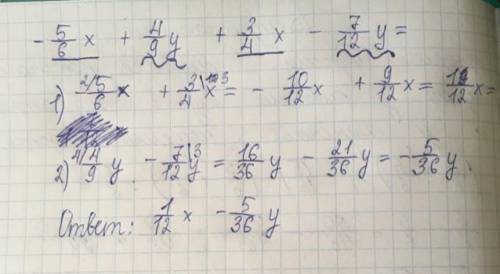 - 5/6 x + 4/9 y + 3/4 x - 7/12 y =
1) 2\5/6 x + 3\3/4 x = - 10/12 x + 9/12 x = 1/12 x =
2) 4\4/9 y - 7\3/12 y = 16/36 y - 21/36 y = - 5/36 y
Ответ: 1/12 x - 5/36 y